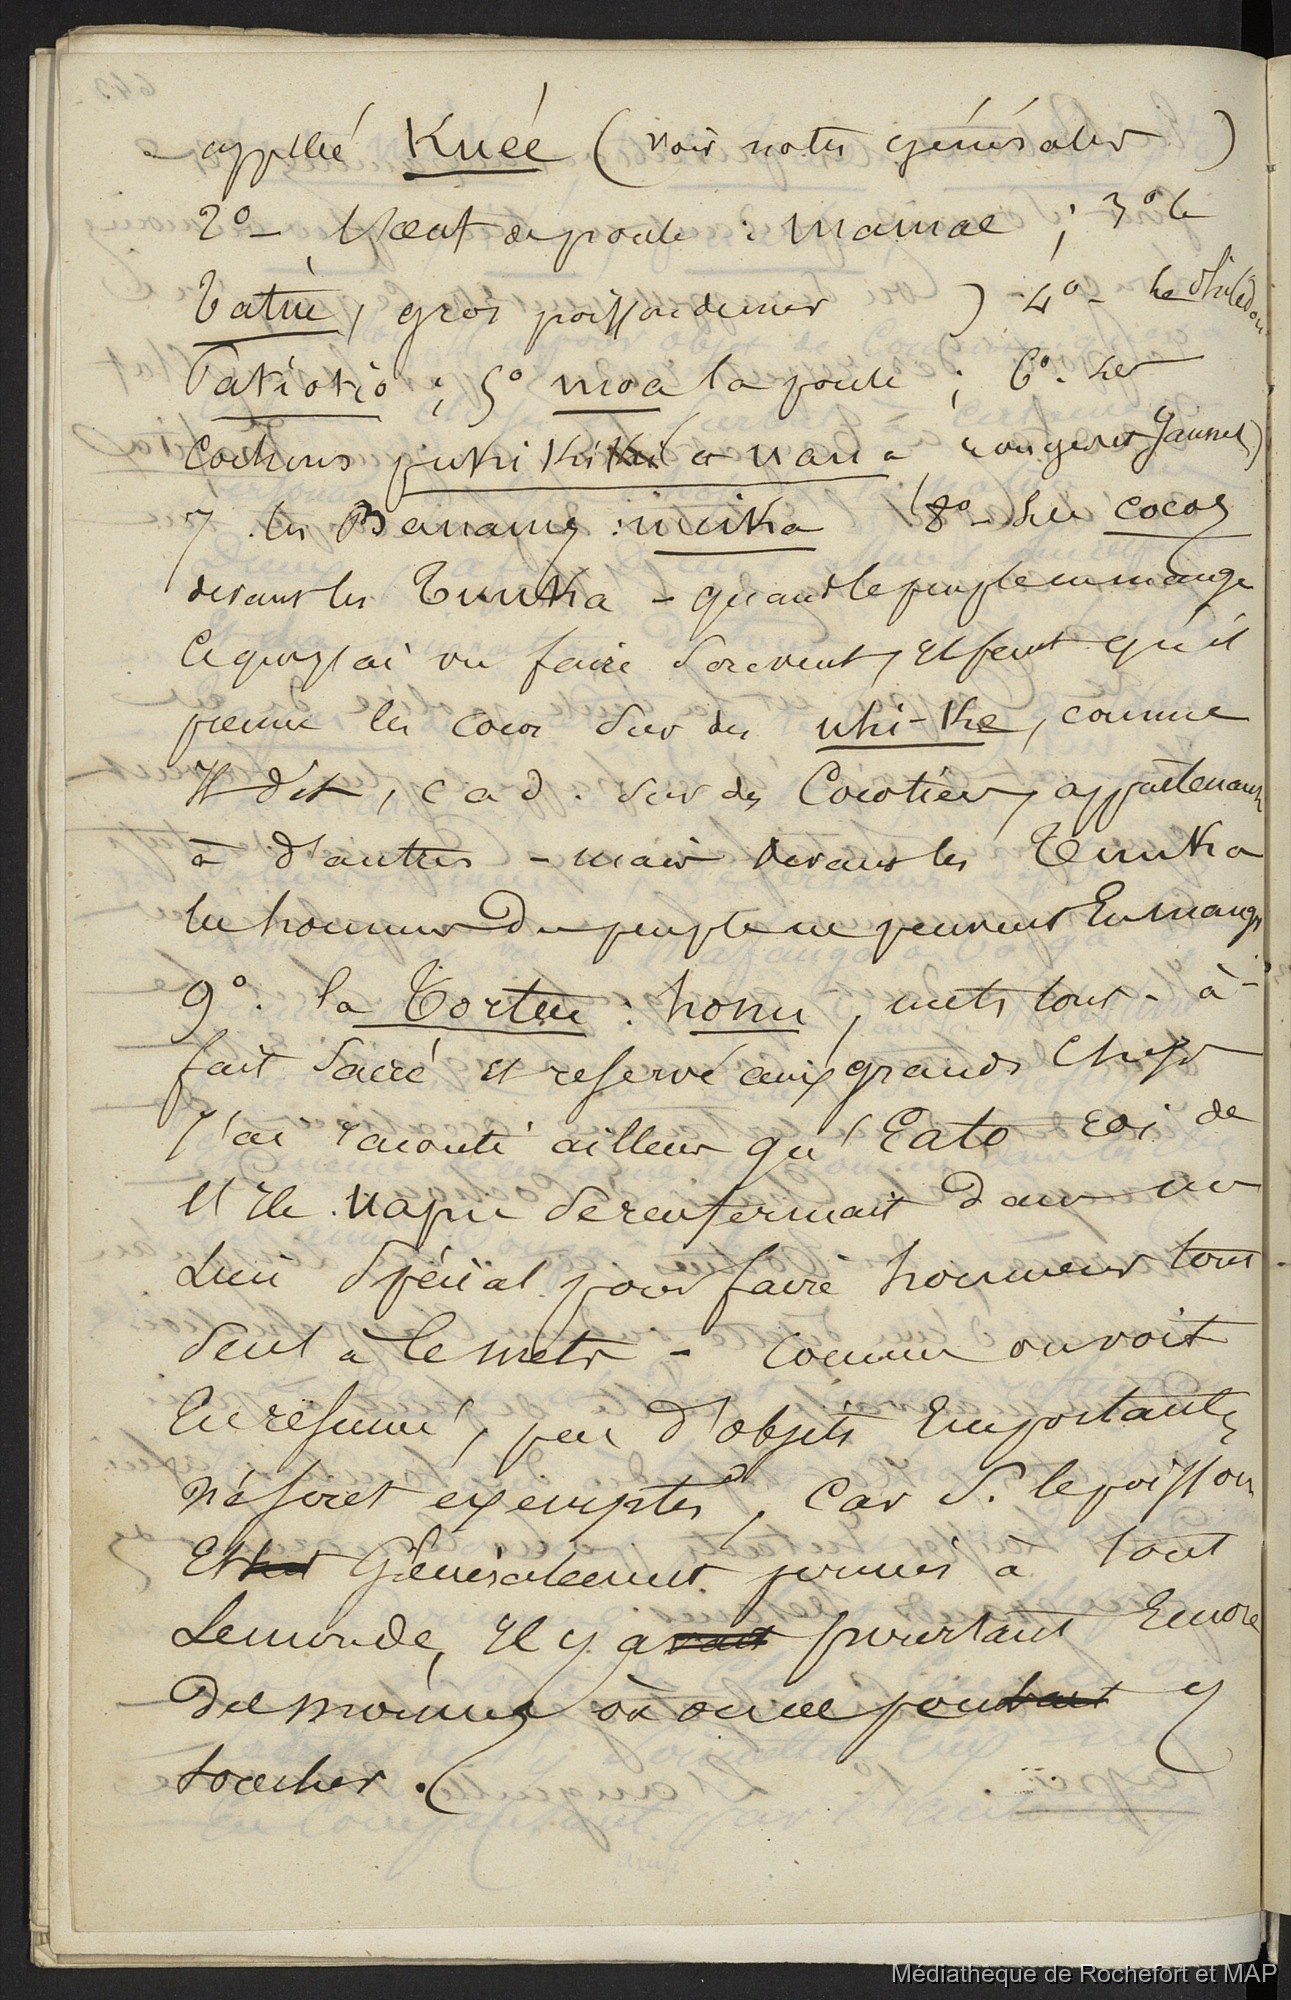 appellé Kuéé (voir notes générales)
2° - l'Oeuf de poule : mamae ; 3° le
Tatue, gros poisson de mer ) 4° - le
Patiotio ; 5° moa la poule ; 6° - les
cochons puhi kiki a vava rouges et jaunes)
7 les Bananes : meika (8° - Les cocos
devant les Tuuka - quand le peuple en mange
ce que j'ai vu faire souvent, il faut qu'il
prenne les cocos sur des uhi-ke, comme
il dit, c a d. sur des Cocotiers, appartenant
à d'autres - mais devant les Tuuka
les hommes du peuple ne peuvent en manger
9°. la Tortue : honu, mets tout-à-
fait sacré et reservé aux grands Chefs
J'ai raconté ailleurs qu'Eato roi de
l'Ile Uapu se renfermait dans un
Lieu Spécial pour faire honneur tout
seul à ce mets - comme on voit
En résumé, peu d'objets importants
n'é exemptés, car S. le poisson
Est Généralement permis à tout
Le monde, Il y a pourtant Encore
des moments où on ne peut y
toucher.
Médiathèque de Rochefort et MAP